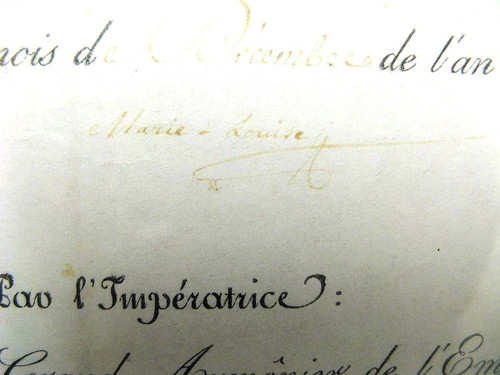 mois de Décembre de l'an
Marie-Louise
Par l'Impératrice:
Grand Aumônier de l'Em